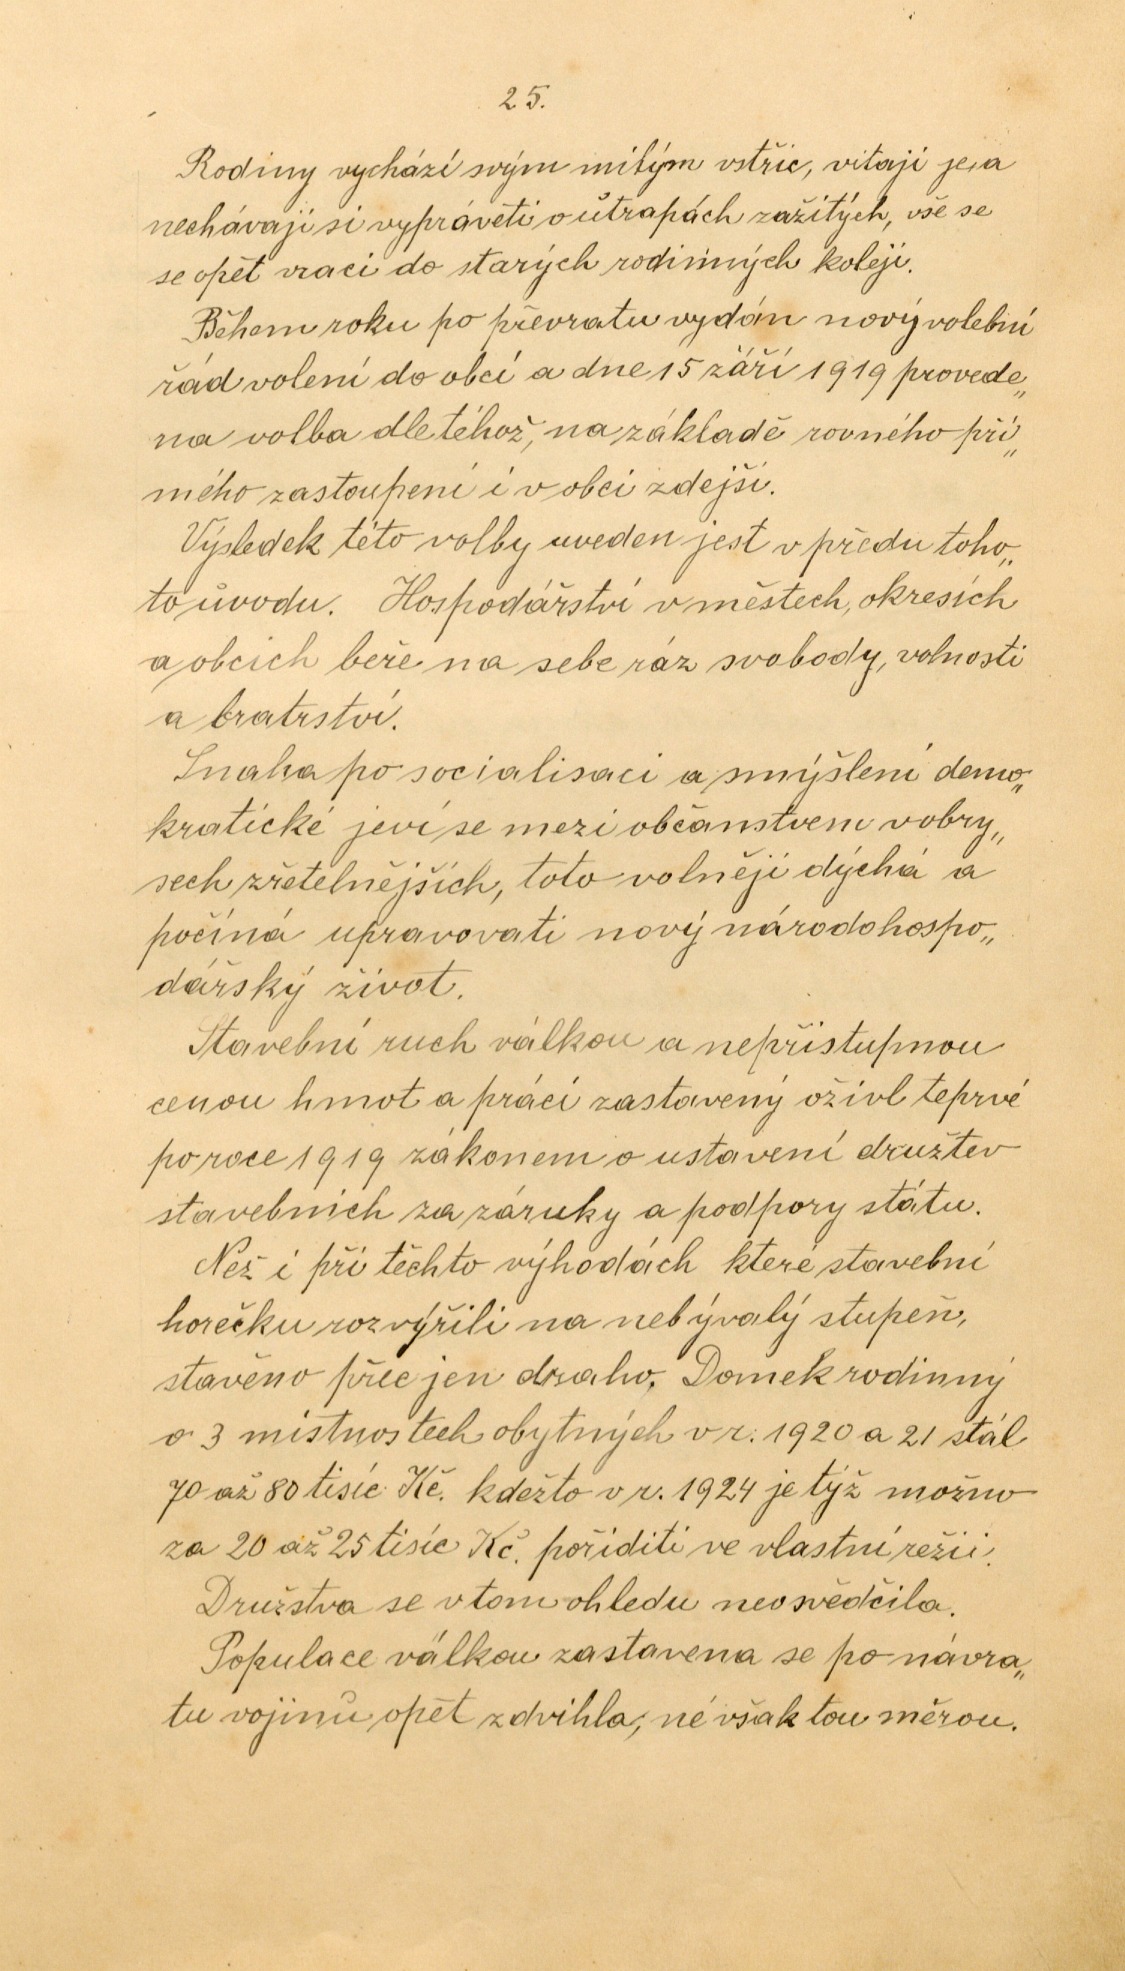 25.
Rodiny vychází svým milým vstříc, vitaji je, a
nechávají si vyprávěti o útrapách zažitých, vše se
se opět vraci do starých rodinných kolejí.
Během roku po převratu vydán nový volební
řád volení do obcí a dne 15 září 1919 provede„
na volba dle téhož, na základě rovného pří„
mého zastoupení i v obci zdejší.
Výsledek této volby uveden jest v předu toho„
to úvodu. Hospodářství v městech, okresích
a obcich beře na sebe ráz svobody, volnosti
a bratrství.
Snaha po socialisaci a smýšlení demo„
kratické jeví se mezi občanstvem v obry„
sech zřetelnějších, toto volněji dýchá a
počíná upravovati nový národohospo„
dářský život.
Stavební ruch válkou a nepřistupnou
cenou hmot a prácí zastavený oživl teprvé
po roce 1919 zákonem o ustavení družtev
stavebnich za záruky a podpory státu.
Než i při těchto výhodách které stavební
horečku rozvýřili na nebývalý stupeň,
stavěno přec jen draho. Domek rodinný
o 3 mistnostech obytných v r. 1920 a 21 stál
70 až 80 tisíc Kč. kdežto v r. 1924 je týž možno
za 20 až 25 tisíc Kč. pořiditi ve vlastní režii.
Družstva se v tom ohledu neosvědčila.
Populace válkou zastavena se po návra„
tu vojínů opět zdvihla, né však tou měrou.